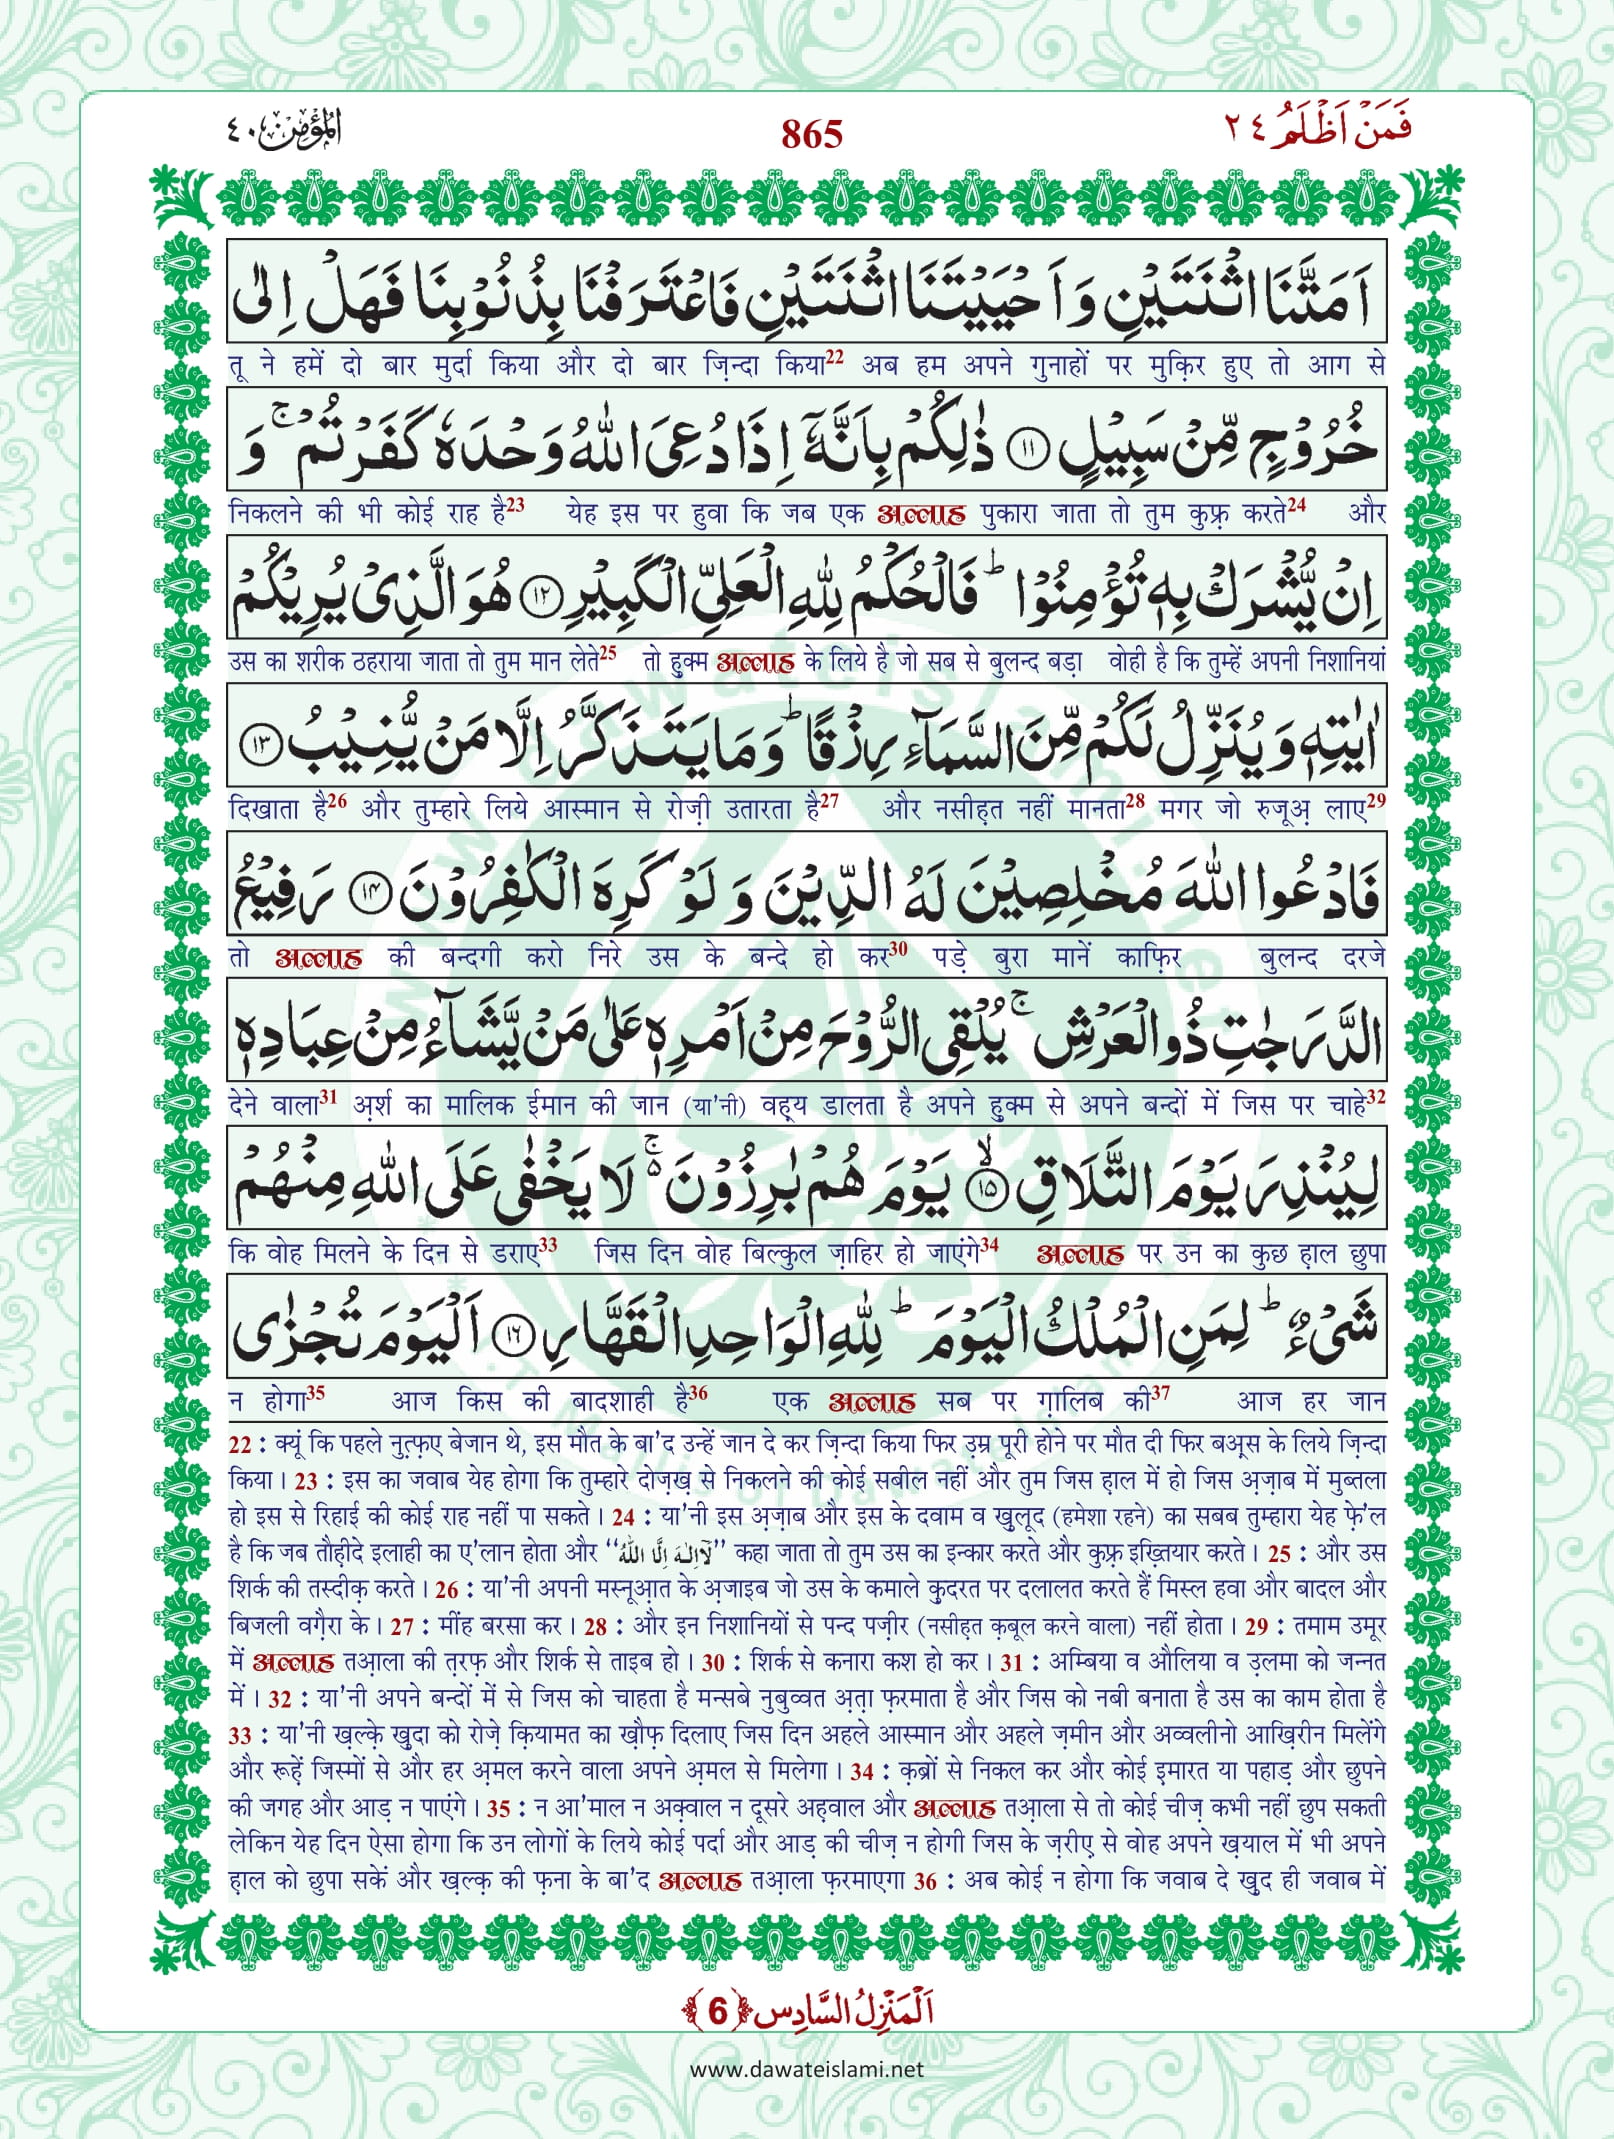 اَلْمُؤْمِن ٤٠ 865 فَمَنْ اَظْلَمُ ٢٤
اَمَتَّنَا اثْنَتَيْنِ وَ اَحْيَيْتَنَا اثْنَتَيْنِ فَاعْتَرَفْنَا بِذُنُوْبِنَا فَهَلْ اِلٰى
तू ने हमें दो बार मुर्दा किया और दो बार ज़िन्दा किया22 अब हम अपने गुनाहों पर मुक़िर हुए तो आग से
خُرُوْجٍ مِّنْ سَبِيْلٍ ﴿۱۱﴾ ذٰلِكُمْ بِاَنَّهٗۤ اِذَا دُعِیَ اللّٰهُ وَحْدَهٗ كَفَرْتُمْ ۚ وَ
निकलने की भी कोई राह है23 येह इस पर हुवा कि जब एक अल्लाह पुकारा जाता तो तुम कुफ़्र करते24 और
اِنْ یُّشْرَكْ بِهٖ تُؤْمِنُوْا ؕ فَالْحُكْمُ لِلّٰهِ الْعَلِیِّ الْكَبِیْرِ ﴿۱۲﴾ هُوَ الَّذِیْ یُرِیْكُمْ
उस का शरीक ठहराया जाता तो तुम मान लेते25 तो हुक्म अल्लाह के लिये है जो सब से बुलन्द बड़ा वोही है कि तुम्हें अपनी निशानियां
اٰیٰتِهٖ وَ یُنَزِّلُ لَكُمْ مِّنَ السَّمَآءِ رِزْقًا ؕ وَ مَا یَتَذَكَّرُ اِلَّا مَنْ یُّنِیْبُ ﴿۱۳﴾
दिखाता है26 और तुम्हारे लिये आस्मान से रोज़ी उतारता है27 और नसीह़त नहीं मानता28 मगर जो रुजूअ़ लाए29
فَادْعُوا اللّٰهَ مُخْلِصِیْنَ لَهُ الدِّیْنَ وَ لَوْ كَرِهَ الْكٰفِرُوْنَ ﴿۱۴﴾ رَفِیْعُ
तो अल्लाह की बन्दगी करो निरे उस के बन्दे हो कर30 पड़े बुरा मानें काफ़िर बुलन्द दरजे
الدَّرَجٰتِ ذُو الْعَرْشِ ۚ یُلْقِی الرُّوْحَ مِنْ اَمْرِهٖ عَلٰى مَنْ یَّشَآءُ مِنْ عِبَادِهٖ
देने वाला31 अ़र्श का मालिक ईमान की जान (या'नी) वह़्य डालता है अपने हुक्म से अपने बन्दों में जिस पर चाहे32
لِیُنْذِرَ یَوْمَ التَّلَاقِ ﴿ۙ۱۵﴾ یَوْمَ هُمْ بٰرِزُوْنَ ۚ۬ لَا یَخْفٰى عَلَى اللّٰهِ مِنْهُمْ
कि वोह मिलने के दिन से डराए33 जिस दिन वोह बिल्कुल ज़ाहिर हो जाएंगे34 अल्लाह पर उन का कुछ ह़ाल छुपा
شَیْءٌ ؕ لِمَنِ الْمُلْكُ الْیَوْمَ ؕ لِلّٰهِ الْوَاحِدِ الْقَهَّارِ ﴿۱۶﴾ اَلْیَوْمَ تُجْزٰى
न होगा35 आज किस की बादशाही है36 एक अल्लाह सब पर ग़ालिब की37 आज हर जान
22 : क्यूं कि पहले नुत़्फ़ए बेजान थे, इस मौत के बा'द उन्हें जान दे कर ज़िन्दा किया फिर उ़म्र पूरी होने पर मौत दी फिर बअ़्स के लिये ज़िन्दा
किया। 23 : इस का जवाब येह होगा कि तुम्हारे दोज़ख़ से निकलने की कोई सबील नहीं और तुम जिस ह़ाल में हो जिस अ़ज़ाब में मुब्तला
हो इस से रिहाई की कोई राह नहीं पा सकते। 24 : या'नी इस अ़ज़ाब और इस के दवाम व ख़ुलूद (हमेशा रहने) का सबब तुम्हारा येह फ़े'ल
है कि जब तौह़ीदे इलाही का ए'लान होता और ‘‘لَآاِلٰهَ اِلَّا اللّٰهُ’’ कहा जाता तो तुम उस का इन्कार करते और कुफ़्र इख़्तियार करते। 25 : और उस
शिर्क की तस्दीक़ करते। 26 : या'नी अपनी मस्नूआ़त के अ़जाइब जो उस के कमाले क़ुदरत पर दलालत करते हैं मिस्ल हवा और बादल और
बिजली वग़ैरा के। 27 : मींह बरसा कर। 28 : और इन निशानियों से पन्द पज़ीर (नसीह़त क़बूल करने वाला) नहीं होता। 29 : तमाम उमूर
में अल्लाह तआ़ला की त़रफ़ और शिर्क से ताइब हो। 30 : शिर्क से कनारा कश हो कर। 31 : अम्बिया व औलिया व उ़लमा को जन्नत
में। 32 : या'नी अपने बन्दों में से जिस को चाहता है मन्सबे नुबुव्वत अ़त़ा फ़रमाता है और जिस को नबी बनाता है उस का काम होता है
33 : या'नी ख़ल्क़े ख़ुदा को रोज़े क़ियामत का ख़ौफ़ दिलाए जिस दिन अहले आस्मान और अहले ज़मीन और अव्वलीनो आख़िरीन मिलेंगे
और रूहें़ जिस्मों से और हर अ़मल करने वाला अपने अ़मल से मिलेगा। 34 : क़ब्रों से निकल कर और कोई इ़मारत या पहाड़ और छुपने
की जगह और आड़ न पाएंगे। 35 : न आ'माल न अक़्वाल न दूसरे अह़वाल और अल्लाह तआ़ला से तो कोई चीज़ कभी नहीं छुप सकती
लेकिन येह दिन ऐसा होगा कि उन लोगों के लिये कोई पर्दा और आड़ की चीज़ न होगी जिस के ज़रीए़ से वोह अपने ख़याल में भी अपने
ह़ाल को छुपा सकें और ख़ल्क़ की फ़ना के बा'द अल्लाह तआ़ला फ़रमाएगा 36 : अब कोई न होगा कि जवाब दे ख़ुद ही जवाब में
اَلْمَنْزِلُ السَّادِس ﴿6﴾
www.dawateislami.net